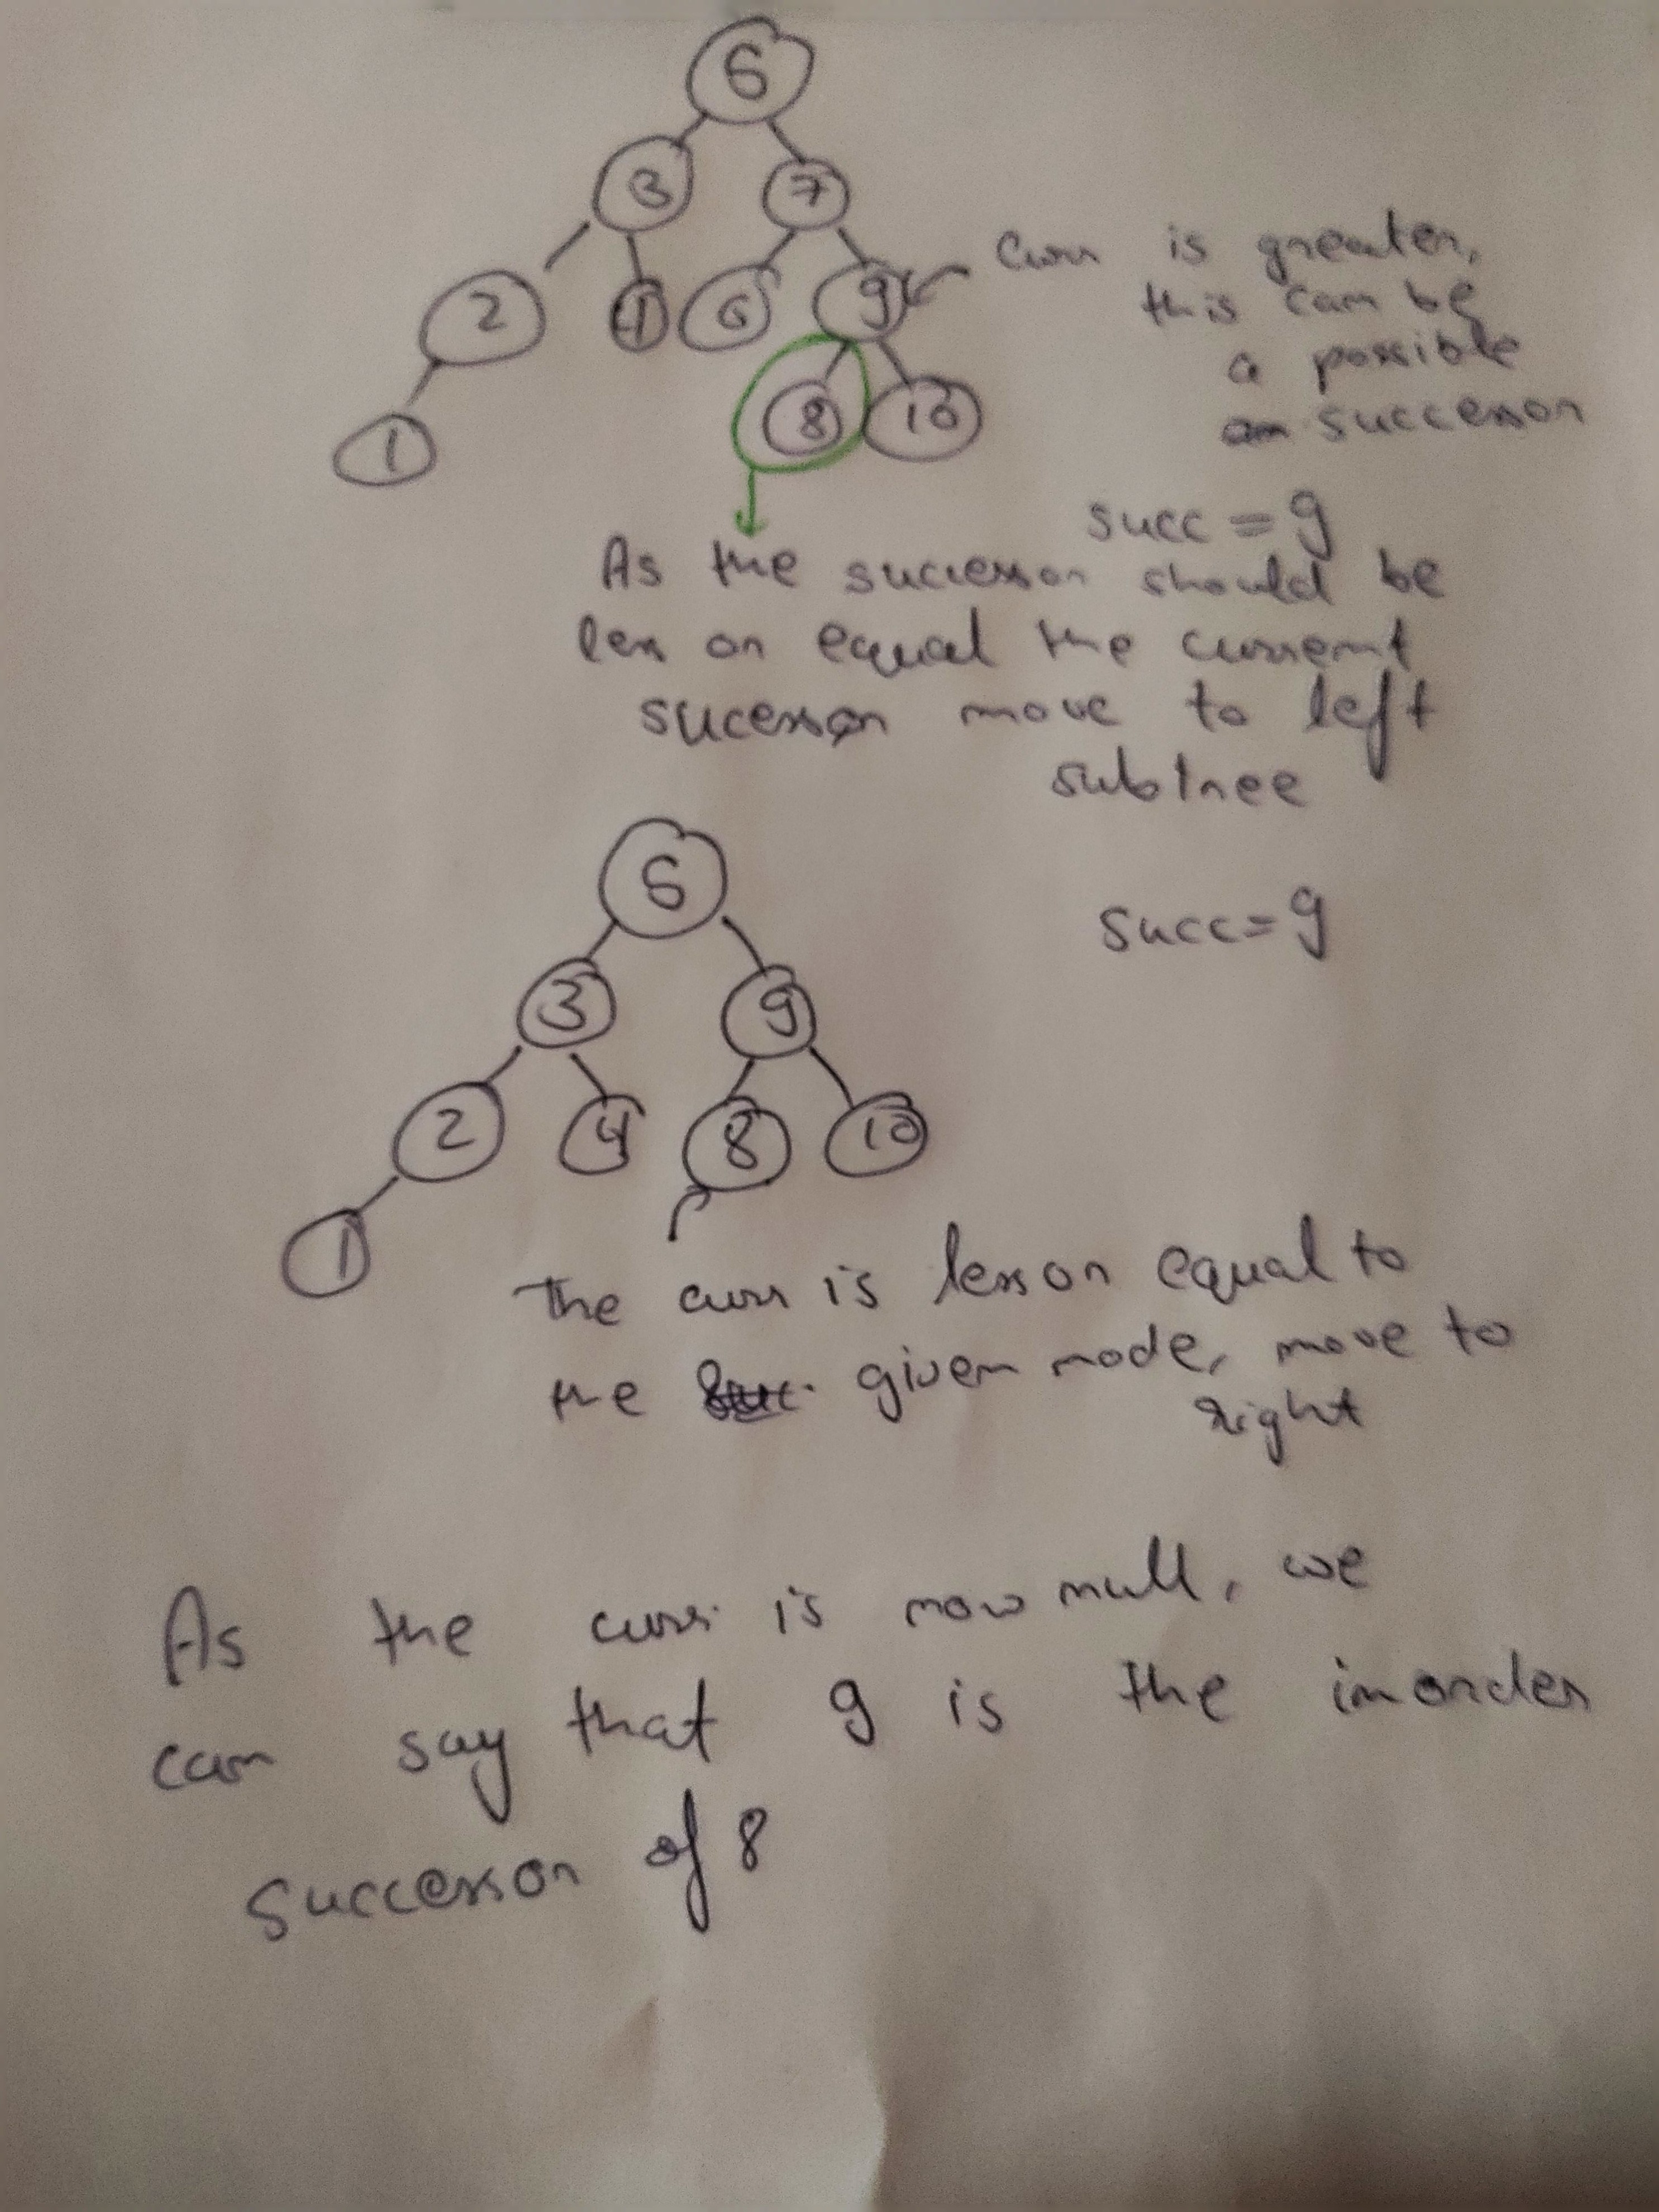 5
3 7
2 4 6 9
8 10
1
Curr is greater,
this can be
a possible
successor
succ = 9
As the successor should be
less or equal the current
sucessor move to left
subtree
5
succ = 9
3 9
2 4 8 10
1
The curr is less or equal to
the given node, move to
right
As the curr is now null, we
can say that 9 is the inorder
successor of 8